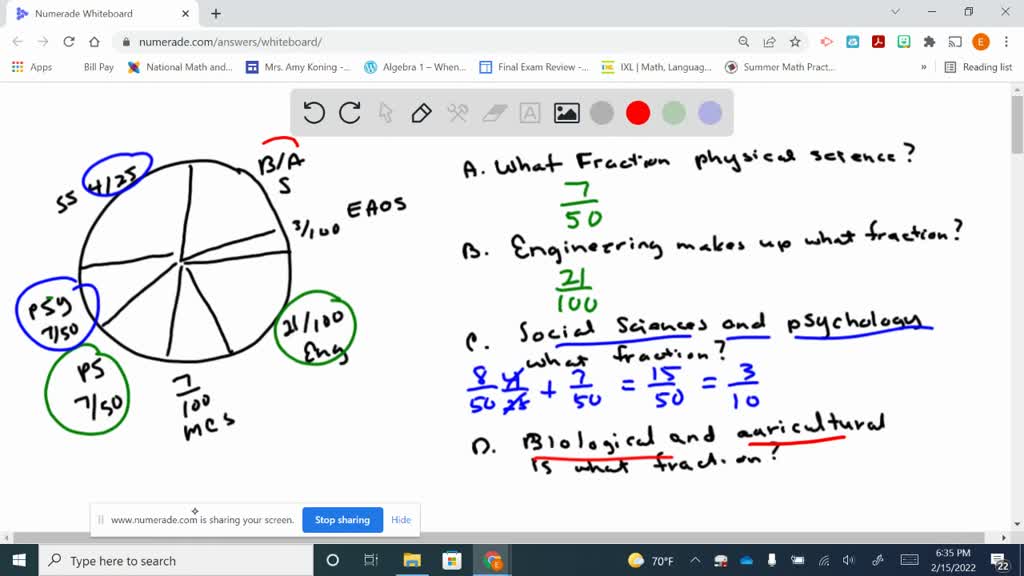 Numerade Whiteboard
numerade.com/answers/whiteboard/
E
Apps
Bill Pay
National Math and...
Mrs. Amy Koning -...
Algebra 1 – When...
Final Exam Review -...
IXL | Math, Languag...
Summer Math Pract...
»
Reading list
A
B/A
S
SS 4/25
3/100 EAOS
PSY
7/50
21/100
Eng
PS
7/50
7
100
MCS
A. What Fraction physical science?
7
50
B. Engineering makes up what fraction?
21
100
C. Social Sciences and psychology
what fraction?
8/50 4/25 + 7/50 = 15/50 = 3/10
D. Biological and auricultural
is what fraction?
www.numerade.com is sharing your screen.
Stop sharing
Hide
Type here to search
70°F
6:35 PM
2/15/2022
22